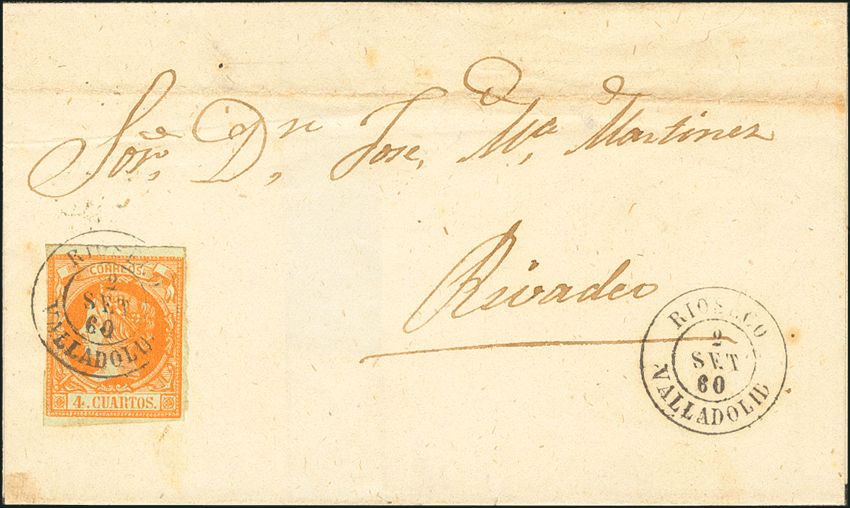 Sor. Dn. Jose, Ma. Martinez
Rivadeo
RIOSECO
2
SET
60
VALLADOLID
CORREOS.
4. CUARTOS.
RIOSECO
2
SET
60
VALLADOLID